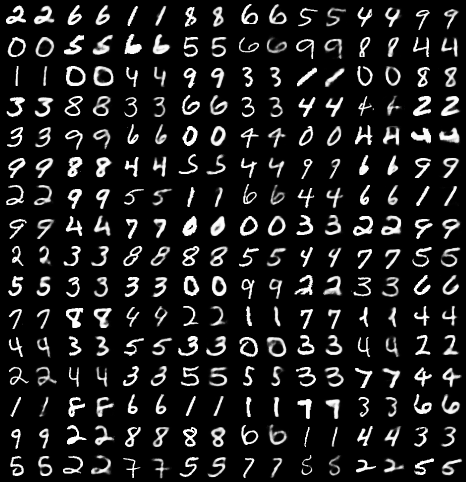 2 2 6 6 1 1 8 8 6 6 5 5 4 4 9 9
0 0 5 5 6 6 5 5 6 6 9 9 8 8 4 4
1 1 0 0 4 4 9 9 3 3 1 1 0 0 8 8
3 3 8 8 3 3 6 6 3 3 4 4 4 4 2 2
3 3 9 9 6 6 0 0 4 4 0 0 4 4 4 4
9 9 8 8 4 4 5 5 4 4 9 9 6 6 9 9
2 2 9 9 5 5 1 1 6 6 4 4 6 6 1 1
9 9 4 4 7 7 0 0 0 0 3 3 2 2 9 9
2 2 3 3 8 8 8 8 5 5 4 4 7 7 5 5
5 5 3 3 3 3 0 0 9 9 2 2 3 3 6 6
7 7 8 8 4 9 2 2 1 1 7 7 1 1 4 4
4 4 3 3 5 5 3 3 0 0 3 3 4 4 2 2
2 2 4 4 3 3 5 5 5 5 3 3 7 7 4 4
1 1 8 8 6 6 1 1 1 1 7 7 3 3 6 6
9 9 2 2 8 8 8 8 6 6 1 1 4 4 3 3
5 5 2 2 7 7 5 5 7 7 5 5 2 2 5 5